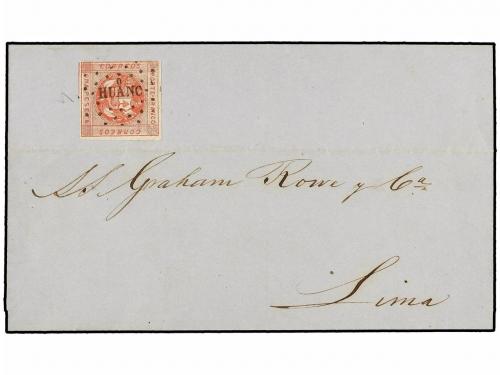 CORREOS
6
HUANC
CORREOS
SS. Graham Rowe y Ca
Lima